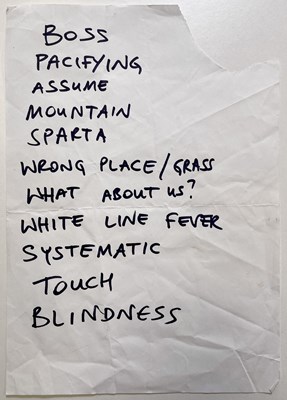 BOSS
PACIFYING
ASSUME
MOUNTAIN
SPARTA
WRONG PLACE/GRASS
WHAT ABOUT US?
WHITE LINE FEVER
SYSTEMATIC
TOUCH
BLINDNESS